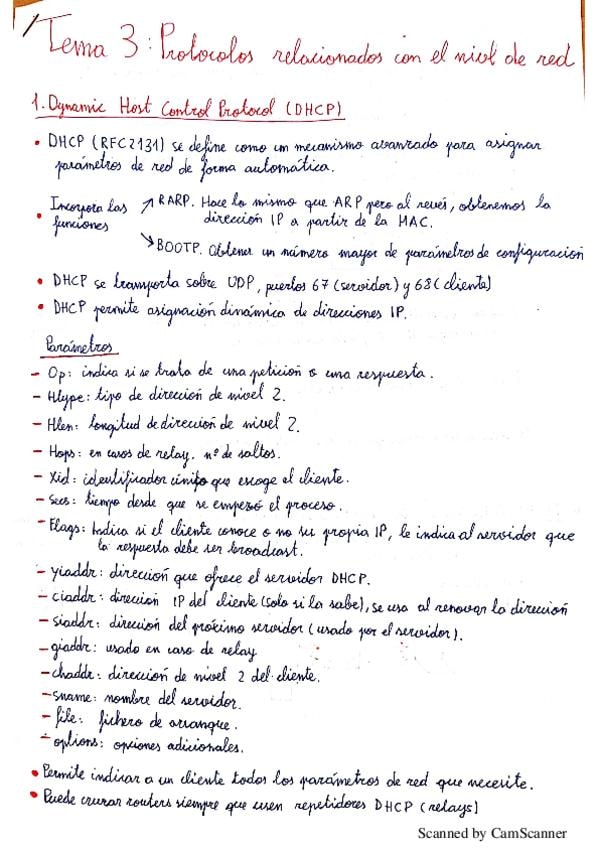 Tema 3: Protocolos relacionados con el nivel de red
1. Dynamic Host Control Protocol (DHCP)
• DHCP (RFC2131) se define como un mecanismo avanzado para asignar
parámetros de red de forma automática.
• Incorpora las funciones
↗ RARP. Hace lo mismo que ARP pero al revés, obtenemos la
dirección IP a partir de la MAC.
↘ BOOTP. Obtener un número mayor de parámetros de configuración
• DHCP se transporta sobre UDP, puertos 67 (servidor) y 68 (cliente)
• DHCP permite asignación dinámica de direcciones IP.
Parámetros
- Op: indica si se trata de una petición o una respuesta.
- Htype: tipo de dirección de nivel 2.
- Hlen: longitud de dirección de nivel 2.
- Hops: en casos de relay. nº de saltos.
- Xid: identificador único que escoge el cliente.
- Secs: tiempo desde que se empezó el proceso.
- Flags: Indica si el cliente conoce o no su propia IP, le indica al servidor que
la respuesta debe ser broadcast.
- yiaddr: dirección que ofrece el servidor DHCP.
- ciaddr: dirección IP del cliente (solo si la sabe), se usa al renovar la dirección
- siaddr: dirección del próximo servidor (usado por el servidor).
- giaddr: usado en caso de relay
- chaddr: dirección de nivel 2 del cliente.
- sname: nombre del servidor.
- file: fichero de arranque.
- options: opciones adicionales.
• Permite indicar a un cliente todos los parámetros de red que necesite.
• Puede cruzar routers siempre que usen repetidores DHCP (relays)
Scanned by CamScanner